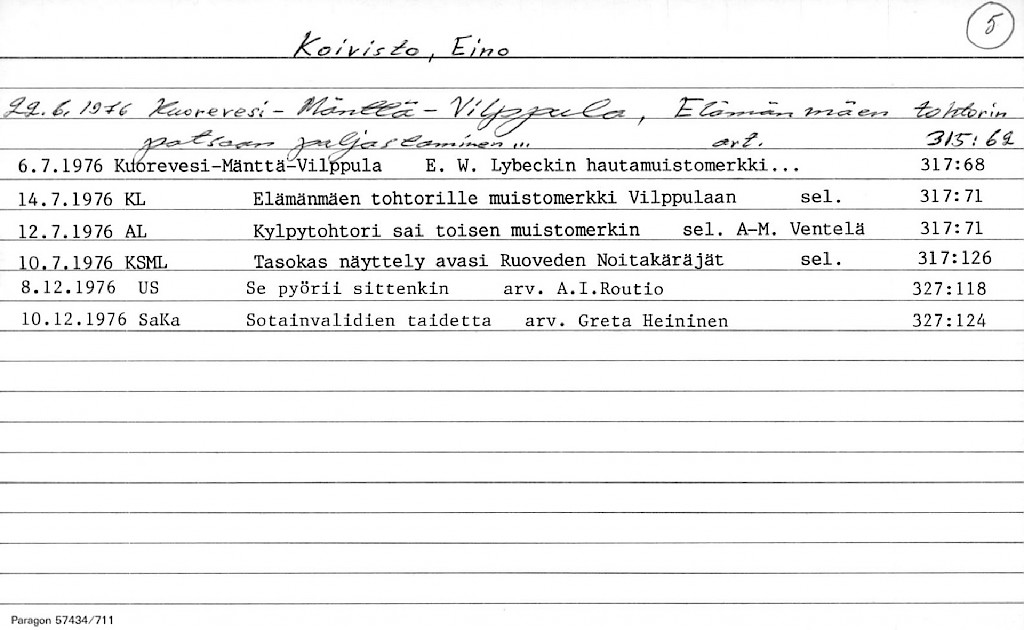 5
Koivisto, Eino
22.6.1976 Kuorevesi-Mänttä-Vilppula, Elämänmäen tohtorin
patsaan paljastaminen... art. 315:62
6.7.1976 Kuorevesi-Mänttä-Vilppula E. W. Lybeckin hautamuistomerkki... 317:68
14.7.1976 KL Elämänmäen tohtorille muistomerkki Vilppulaan sel. 317:71
12.7.1976 AL Kylpytohtori sai toisen muistomerkin sel. A-M. Ventelä 317:71
10.7.1976 KSML Tasokas näyttely avasi Ruoveden Noitakäräjät sel. 317:126
8.12.1976 US Se pyörii sittenkin arv. A.I.Routio 327:118
10.12.1976 SaKa Sotainvalidien taidetta arv. Greta Heininen 327:124
Paragon 57434/711